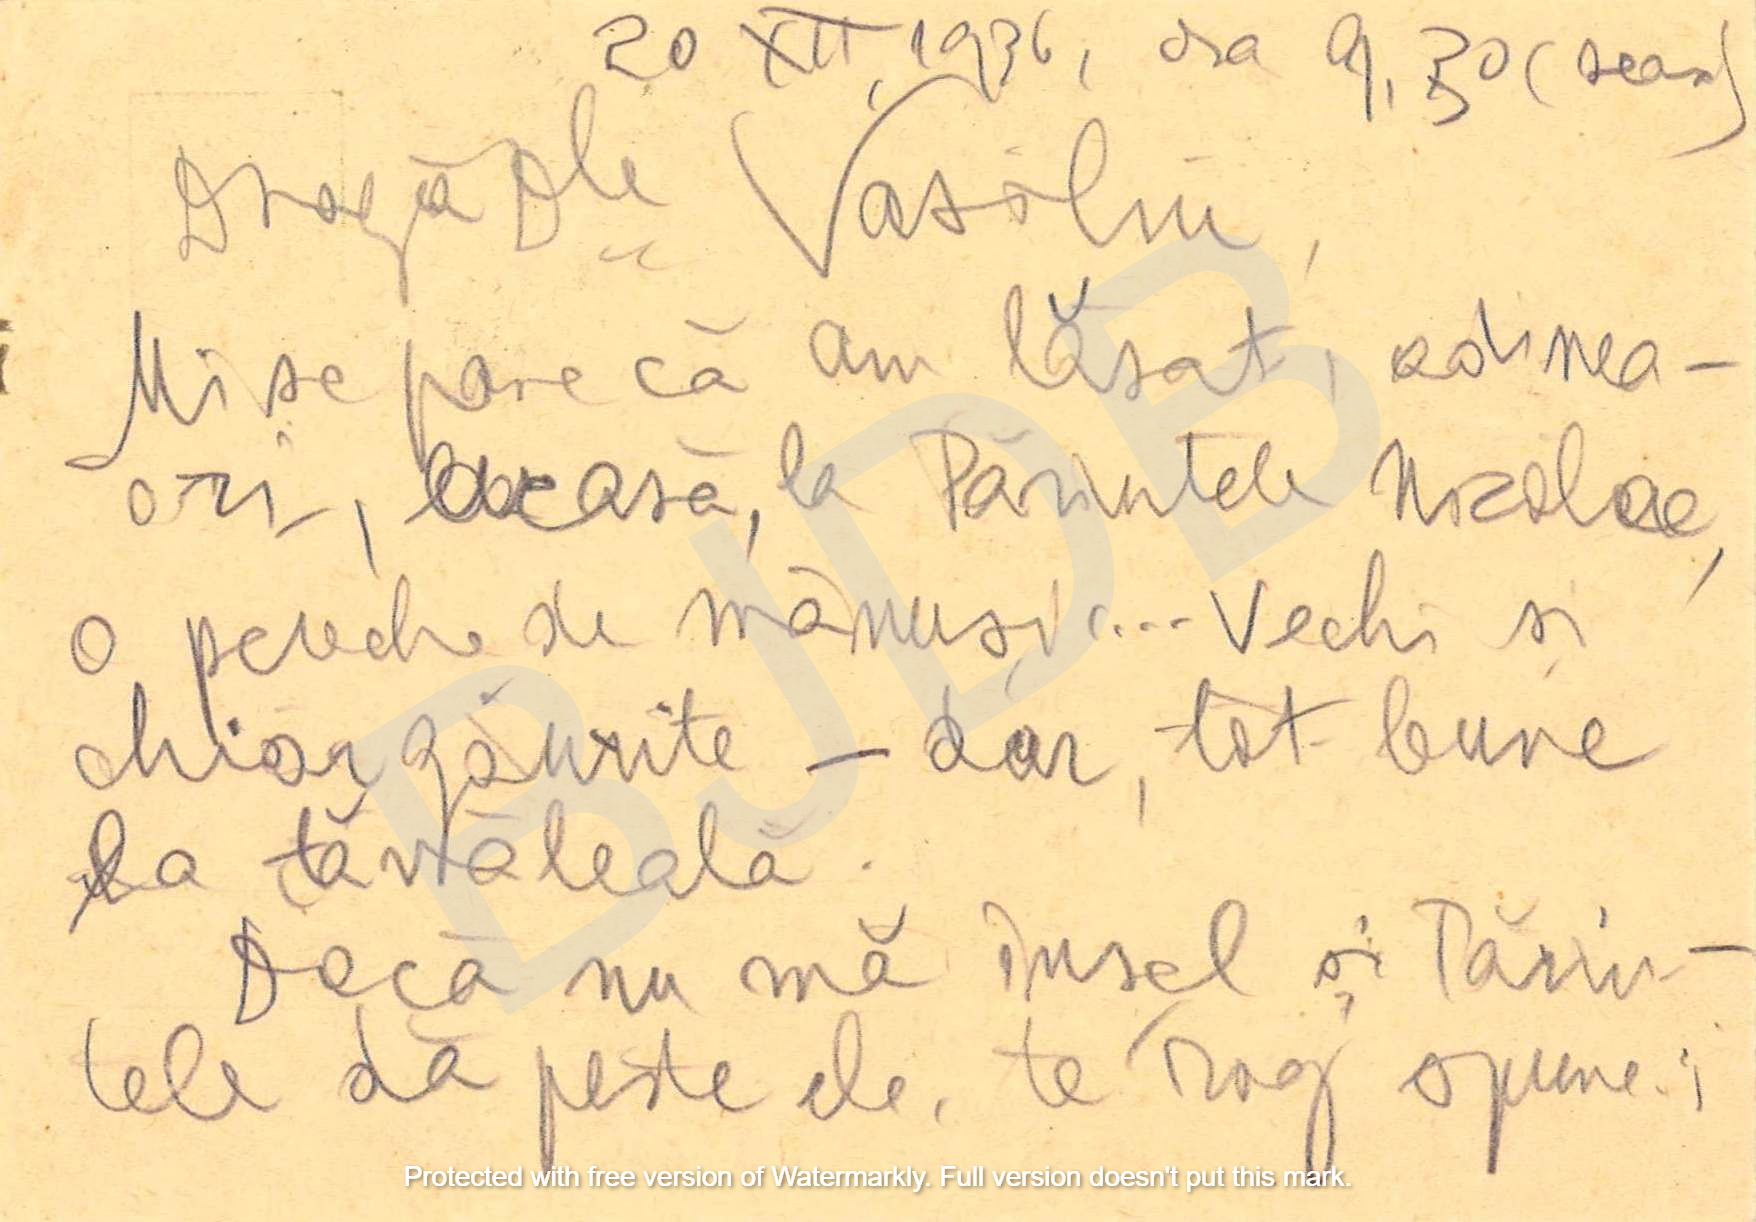 20 XII, 1936, ora 9,30 (seara)
Dragă Dle Vasiliu,
Mi se pare că am lăsat, adinea-
ori, acasă, la Părintele Nicolae,
o pereche de mănuși... Vechi și
chiar găurite – dar, tot bune
la tăvăleală.
Dacă nu mă înșel și Părin-
tele dă peste ele, te rog spune-i
BJDB
Protected with free version of Watermarkly. Full version doesn't put this mark.